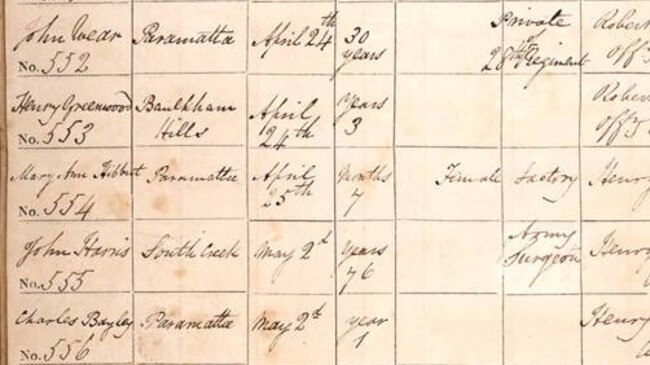 John Wear
No. 552
Paramatta
April 24th
30
years
Private
of
28th Regiment
Rober
off
Henry Greenwood
No. 553
Baulkham
Hills
April
24th
years
3
Rober
off
Mary Ann Hibbut
No. 554
Paramatta
April
25th
Months
7
Female Factory
Henry
John Harris
No. 555
South Creek
May 2d
years
76
Army
Surgeon
Henry
Charles Bayley
No. 556
Paramatta
May 2d
year
1
Henry